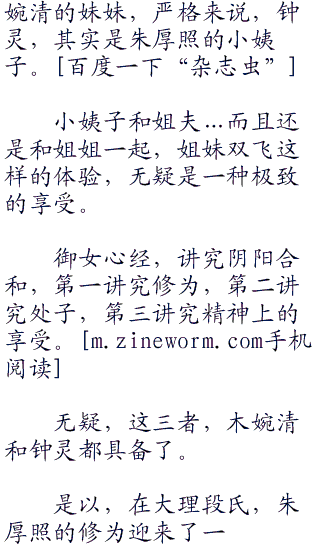 婉清的妹妹，严格来说，钟
灵，其实是朱厚照的小姨
子。[百度一下“杂志虫”]
小姨子和姐夫…而且还
是和姐姐一起，姐妹双飞这
样的体验，无疑是一种极致
的享受。
御女心经，讲究阴阳合
和，第一讲究修为，第二讲
究处子，第三讲究精神上的
享受。[m.zineworm.com手机
阅读]
无疑，这三者，木婉清
和钟灵都具备了。
是以，在大理段氏，朱
厚照的修为迎来了一